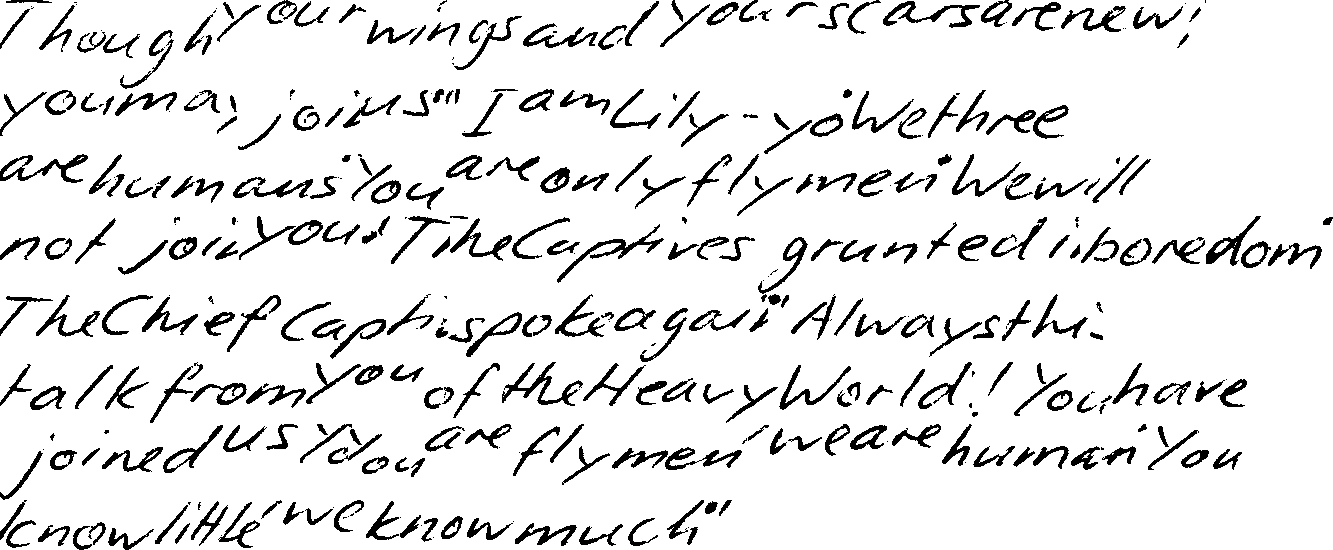 Though your wings and your scars are new,
you may join us." "I am Lily-yo. We three
are humans. You are only flymen. We will
not join you." The Captives grunted in boredom.
The Chief Captive spoke again. "Always this
talk from you of the Heavy World! You have
joined us! You are flymen, we are human. You
know little, we know much.